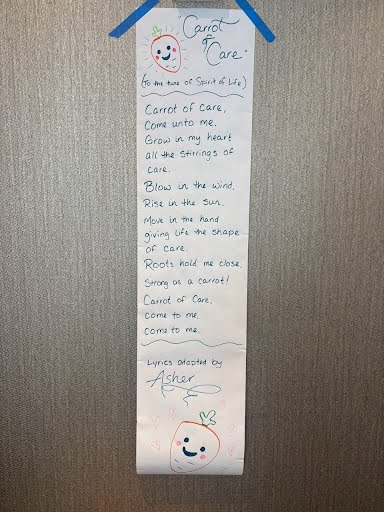 "Carrot
of
Care"
(To the tune of Spirit of Life)
Carrot of Care,
Come unto me.
Grow in my heart
all the stirrings of
care.
Blow in the wind,
Rise in the sun.
Move in the hand
giving life the shape
of care.
Roots hold me close,
Strong as a carrot!
Carrot of Care,
come to me,
come to me.
Lyrics adapted by
Asher